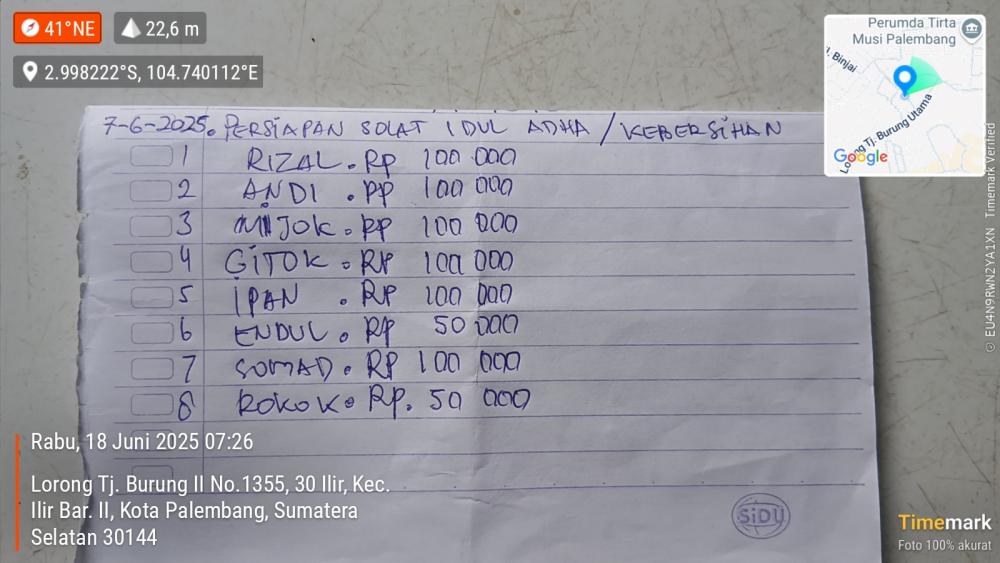 41°NE
22,6 m
2.998222°S, 104.740112°E
Perumda Tirta
Musi Palembang
Binjai
Lorong Tj. Burung Utama
Google
7-6-2025. PERSIAPAN SOLAT IDUL ADHA / KEBERSIHAN
1 RIZAL. RP 100 000
2 ANDI . RP 100 000
3 MIJOK. RP 100 000
4 GITOK. RP 100 000
5 IPAN . RP 100 000
6 ENDUL. RP 50 000
7 SOMAD. RP 100 000
8 ROKOK. RP. 50 000
Rabu, 18 Juni 2025 07:26
Lorong Tj. Burung II No.1355, 30 Ilir, Kec.
Ilir Bar. II, Kota Palembang, Sumatera
Selatan 30144
SiDU
Timemark
Foto 100% akurat
© EU4N9RWN2YA1XN Timemark Verified